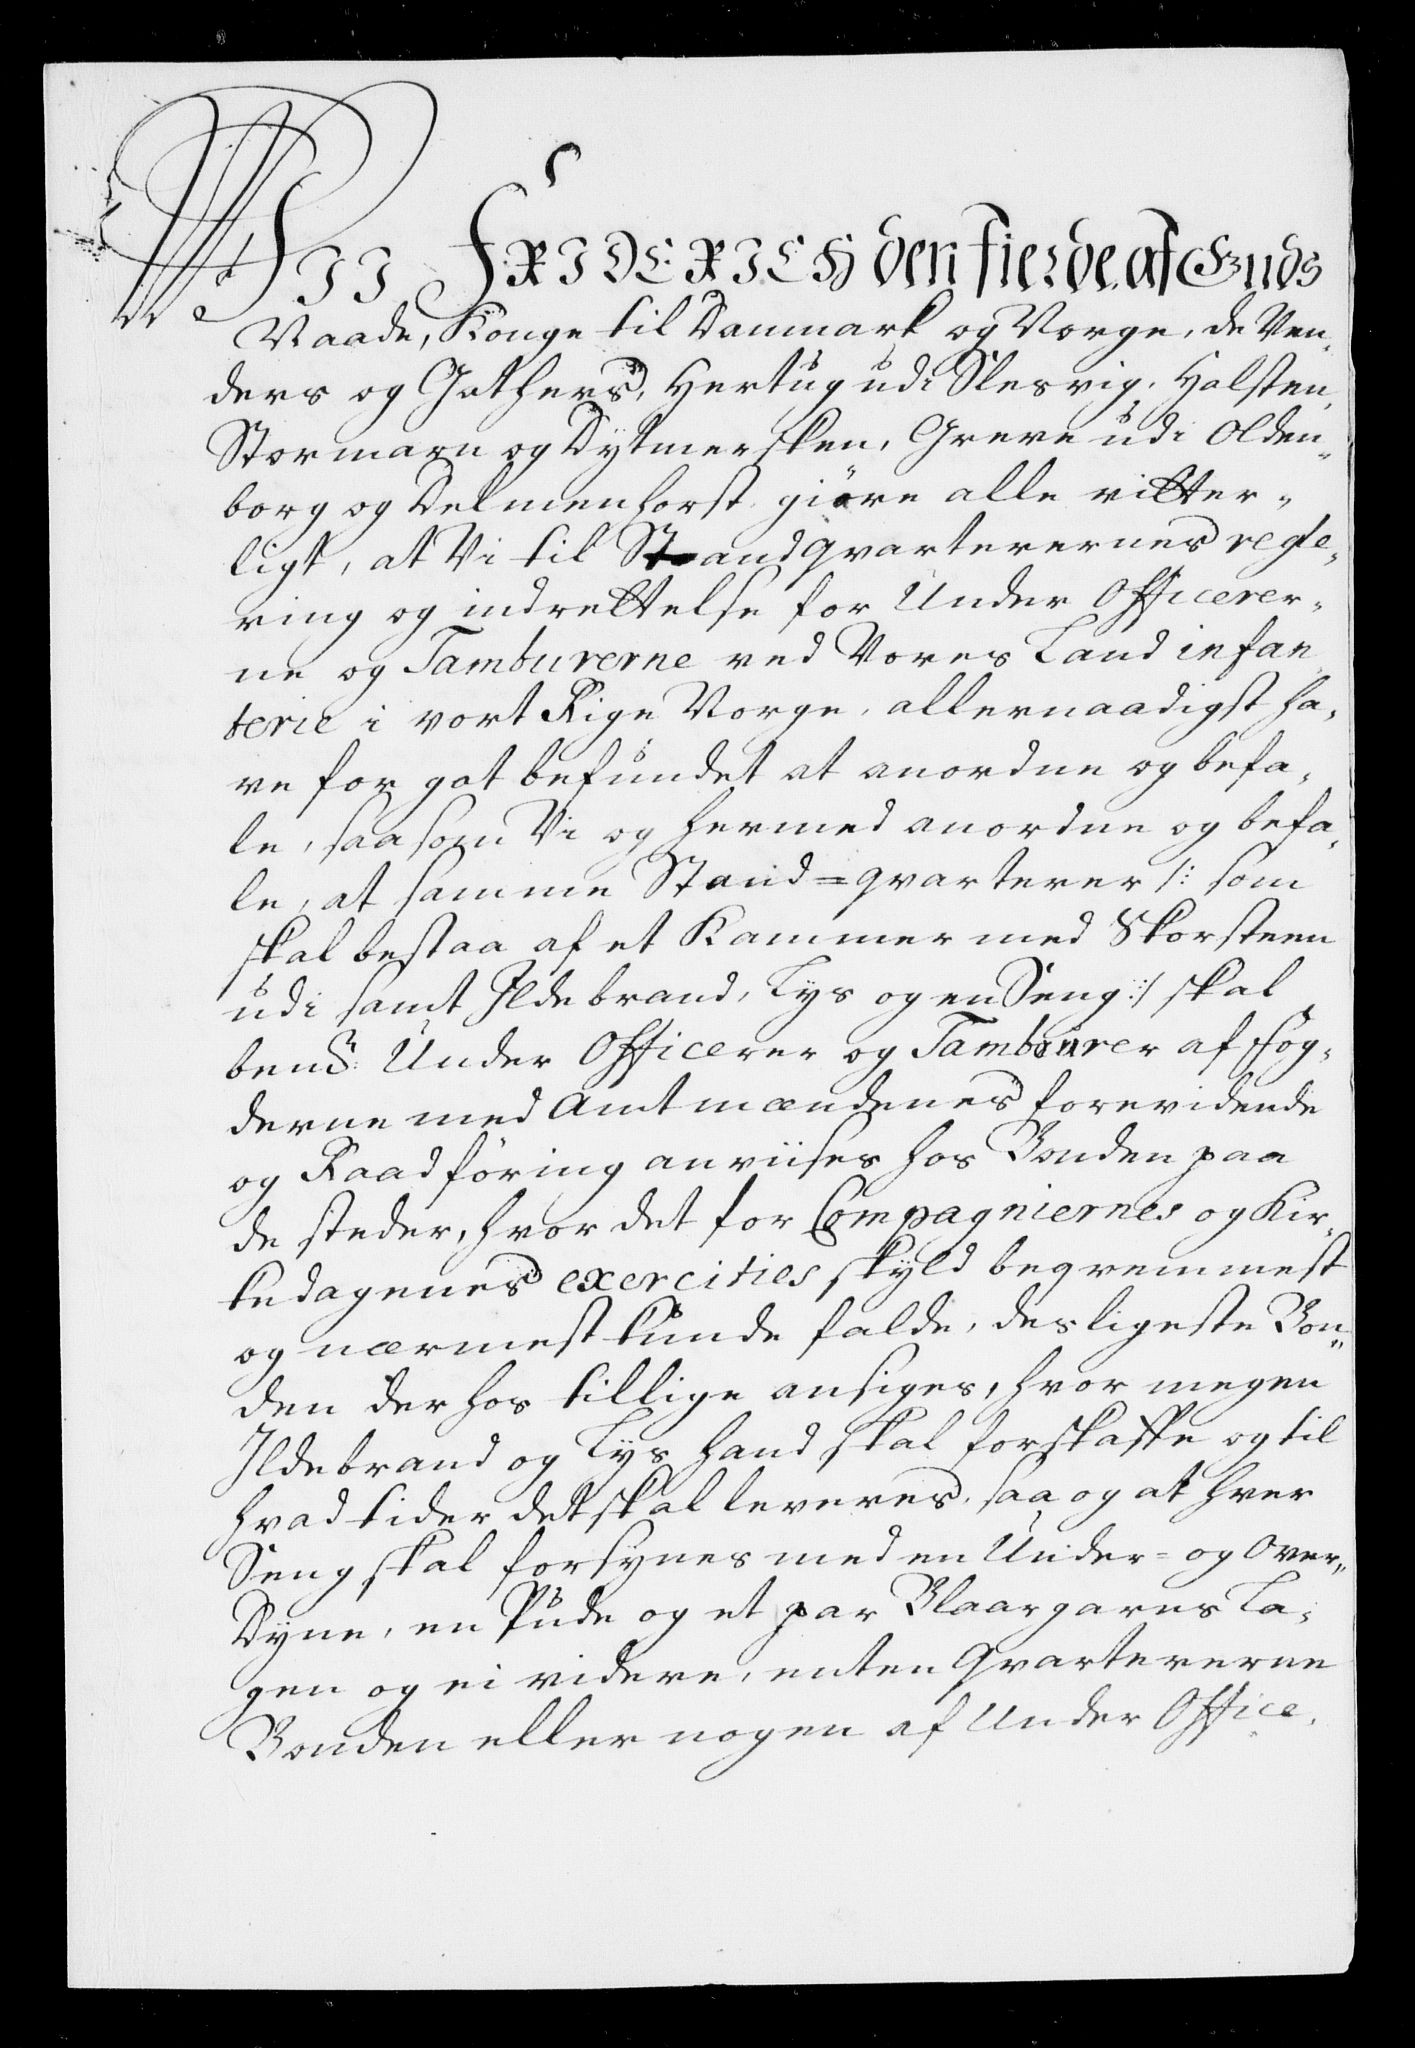 Wii FRIDERICH den fierde, af Guds
Naade, Konge til Danmark og Norge, de Ven-
ders og Gothers, Hertug udi Slesvig, Holsten,
Stormarn og Dytmersken, Greve udi Olden-
borg og Delmenhorst, giöre alle vitter-
ligt, at Vi til Standqvarterernes regle-
ring og indrettelse for Under Officerer-
ne og Tamburerne ved Vores Land infan
terie i vort Rige Norge, allernaadigst ha-
ve for got befundet at anordne og befa-
le, saasom Vi og hermed anordne og befa-
le, at samme Stand=qvarterer /: som
skal bestaa af et Kammer med Skorsteen
udi samt Ildebrand, Lys og en Seng :/ skal
ben:te Under Officerer og Tambourer af Fog-
derne med Amtmændenes forevidende
og Raadföring anviises hos Bonden paa
de steder, hvor det for Compagniernes og Kir-
kedagenes exercities skyld beqvemmest
og nærmest kunde falde, desligeste Bon-
den der hos tillige ansiges, hvor megen
Ildebrand og Lys hand skal forskaffe og til
hvad tider det skal leveres, saa og at hver
Seng skal forsynes med en Under= og Over-
Dyne, en Pude og et par Blaargarns La-
gen og ei videre, enten Qvartererne
Bonden eller nogen af Under Office-